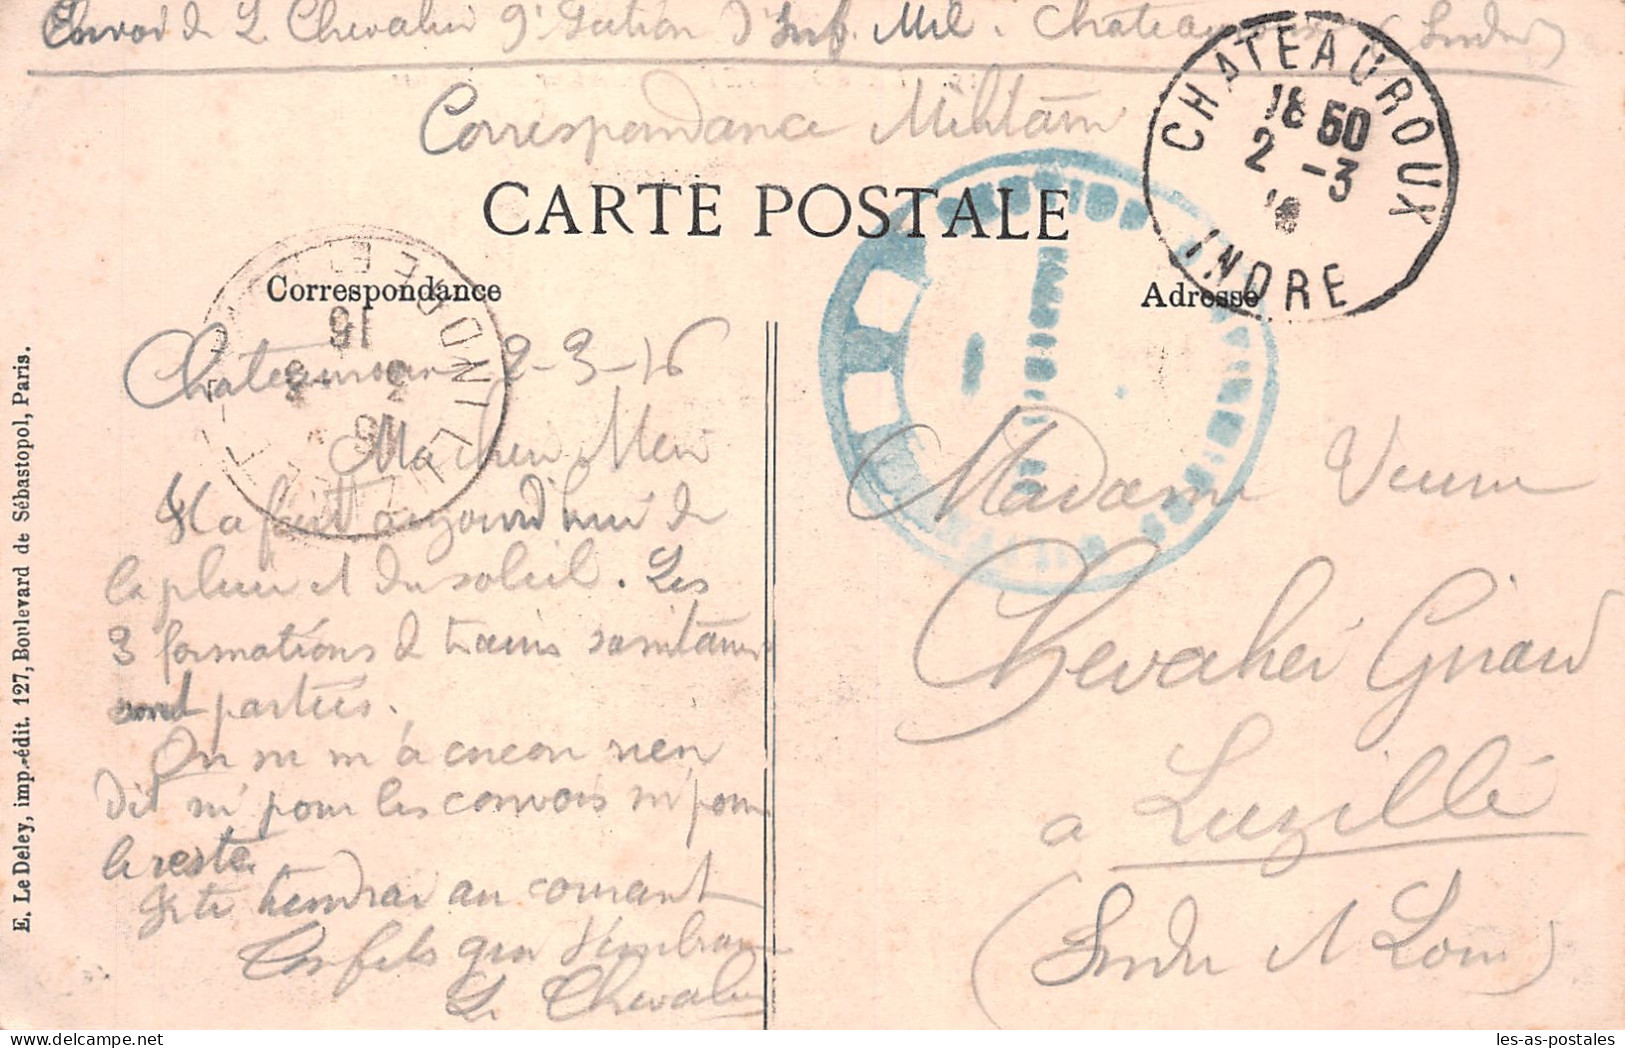 Envoi de L. Chevalier 9e Section d'Inf. Mil. Chateauroux (Indre)
Correspondance Militaire
CARTE POSTALE
Correspondance
Adresse
CHATEAUROUX
18 50
2 -3
16
INDRE
INDRE ET L
16
3 -3
LUZILLÉ
Chateauroux 2-3-16
Ma chère Mère
Il a fait aujourd'hui de
la pluie et du soleil. Les
3 formations de trains sanitaires
sont parties.
On ne m'a encore rien
dit ni pour les convois ni pour
le reste.
Je te tiendrai au courant
Ton fils qui t'embrasse
L. Chevalier
Madame Veuve
Chevalier Girard
à Luzillé
(Indre et Loire)
E. Le Deley, imp.-édit. 127, Boulevard de Sébastopol, Paris.
les-as-postales